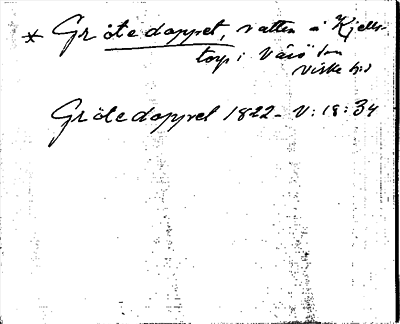 * Grötedoppet, vatten å Kjells-
torp i Värö sn
Viske hd
Grötedoppel 1822 - V: 18: 34